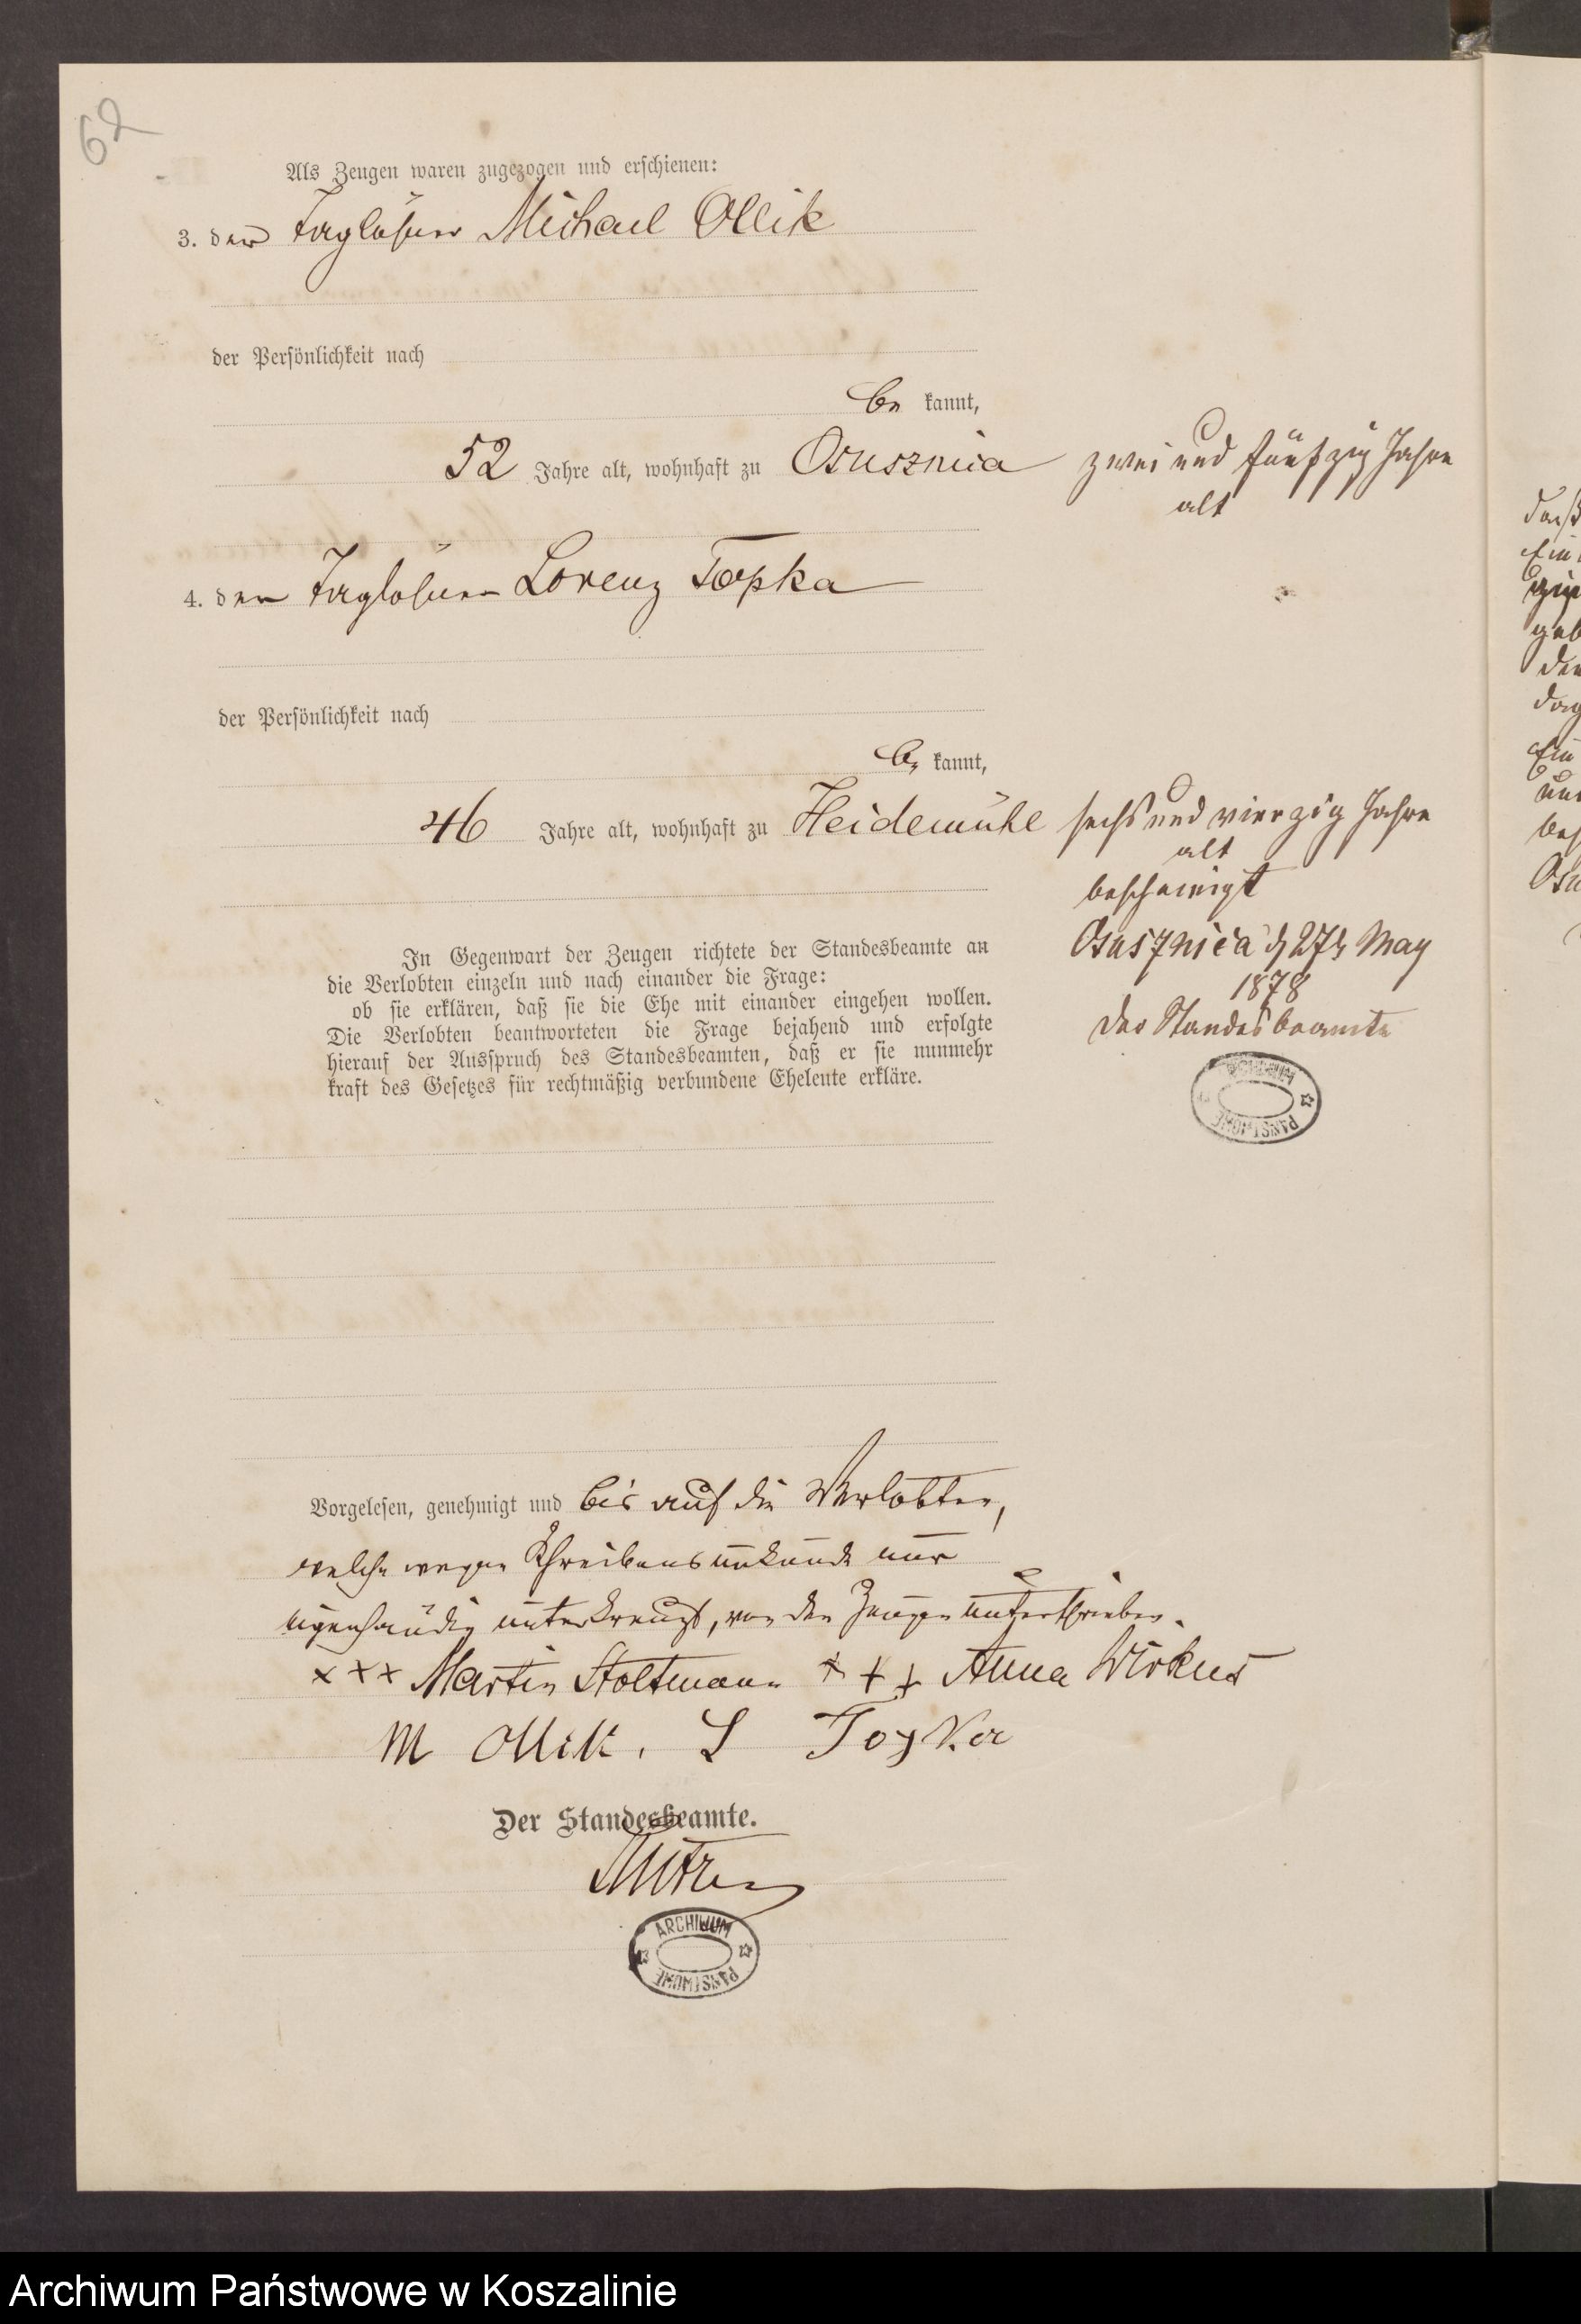 62
Als Zeugen waren zugezogen und erschienen:
3. der Taglöhner Michael Ollik
der Persönlichkeit nach
be kannt,
52 Jahre alt, wohnhaft zu Osusznica
zwei und fünfzig Jahre
alt
4. der Taglöhner Lorenz Topka
der Persönlichkeit nach
be kannt,
46 Jahre alt, wohnhaft zu Heidemühl
sechs und vierzig Jahre
alt
bescheinigt
Osusznica d 27t May
1878
Der Standesbeamte
In Gegenwart der Zeugen richtete der Standesbeamte an
die Verlobten einzeln und nach einander die Frage:
ob sie erklären, daß sie die Ehe mit einander eingehen wollen.
Die Verlobten beantworteten die Frage bejahend und erfolgte
hierauf der Ausspruch des Standesbeamten, daß er sie nunmehr
kraft des Gesetzes für rechtmäßig verbundene Eheleute erkläre.
ARCHIWUM PAŃSTWOWE
Vorgelesen, genehmigt und bis auf die Verlobten,
welche wegen Schreibensunkunde nur
eigenhändig unterkreuzt, von den Zeugen unterschrieben.
xxx Martin Stoltmann +++ Anna Wirkus
M Ollik. L Topka
Der Standesbeamte.
ARCHIWUM PAŃSTWOWE
Archiwum Państwowe w Koszalinie